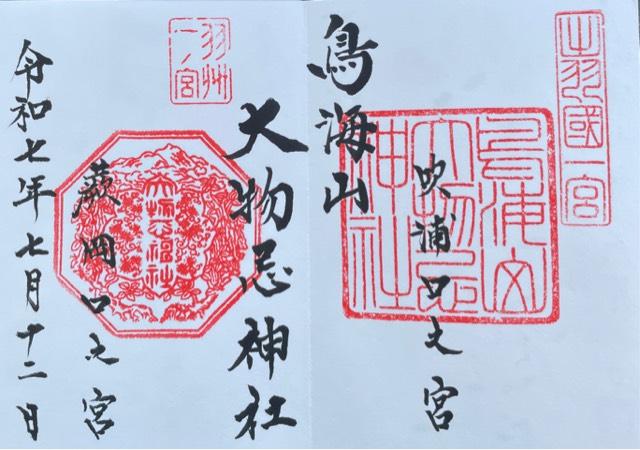 出羽國一宮
鳥海山
大物忌神社
吹浦口之宮
鳥海山
大物忌神社
羽州
一ノ宮
大物忌神社
蕨岡口之宮
令和七年七月十二日